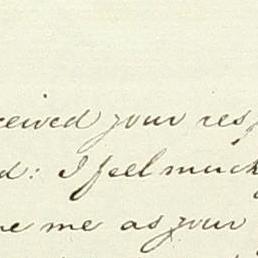 ceived your res
d: I feel much
me as your